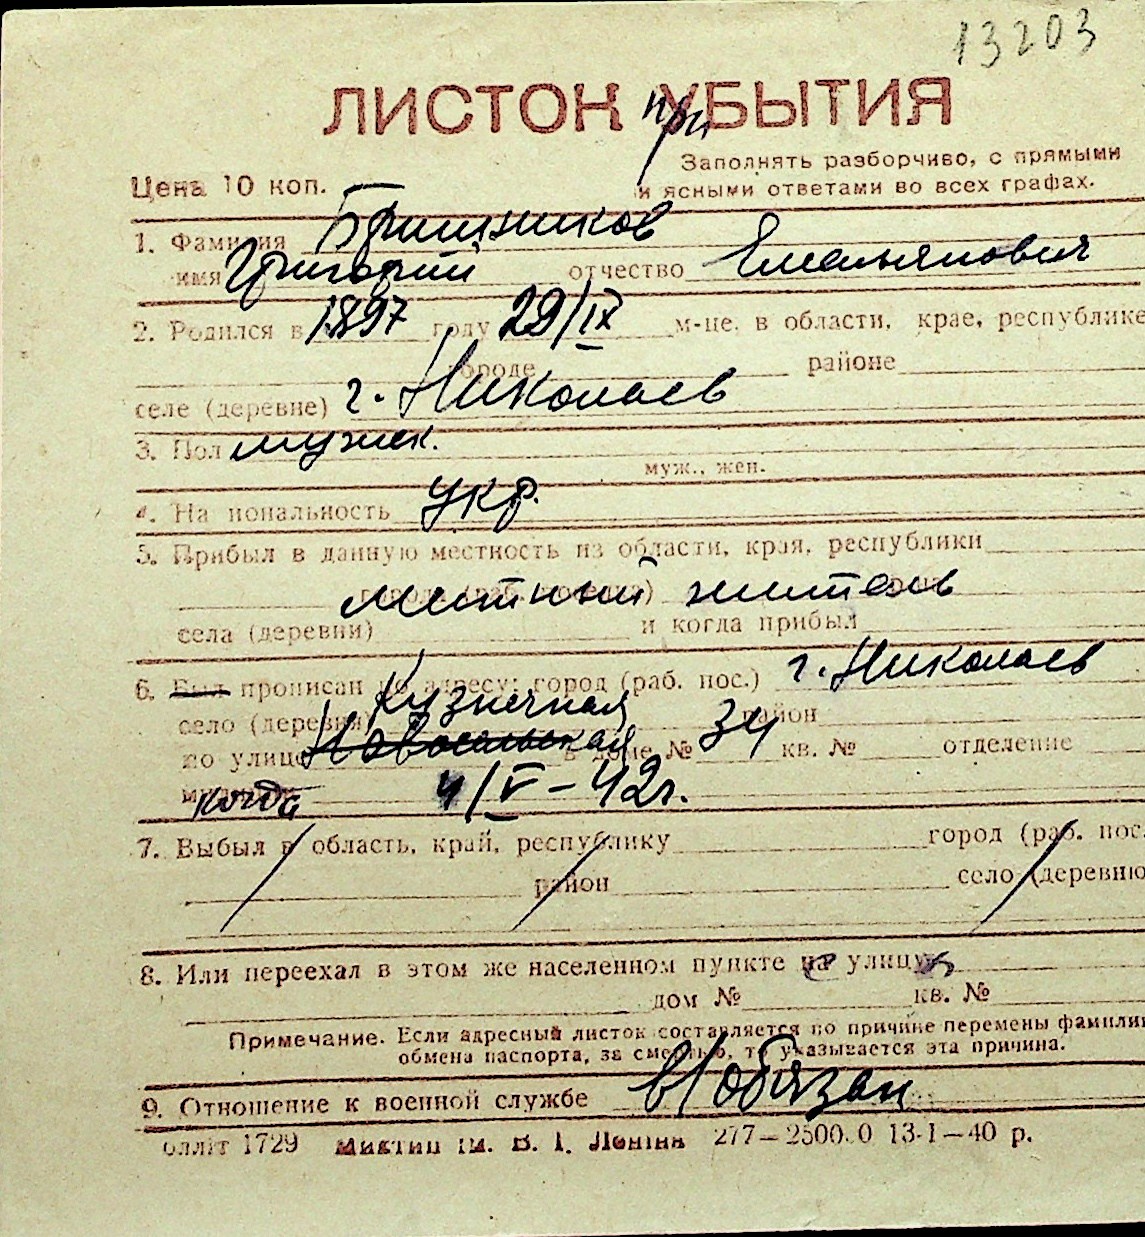 13203
ЛИСТОК УБЫТИЯ
при
Заполнять разборчиво, с прямыми
Цена 10 коп.
и ясными ответами во всех графах.
1. Фамилия Бритников
имя Григорий отчество Емельянович
2. Родился в 1897 году 29/IX м-це, в области, крае, республике
городе районе
селе (деревне) г. Николаев
3. Пол мужск.
муж., жен.
4. Национальность укр.
5. Прибыл в данную местность из области, края, республики
местный житель
села (деревни) и когда прибыл
6. Был прописан по адресу: город (раб. пос.) г. Николаев
Кузнечная
село (деревня) район
по улице в доме № 34 кв. № отделение
когда 4/V – 42г.
7. Выбыл в область, край, республику город (раб. пос.
район село (деревню
8. Или переехал в этом же населенном пункте на улицу
дом № кв. №
Примечание. Если адресный листок составляется по причине перемены фамилии
обмена паспорта, за смертью, то указывается эта причина.
9. Отношение к военной службе в/обязан
1729 В. І. Леніна 277–2500.0 13-1–40 р.